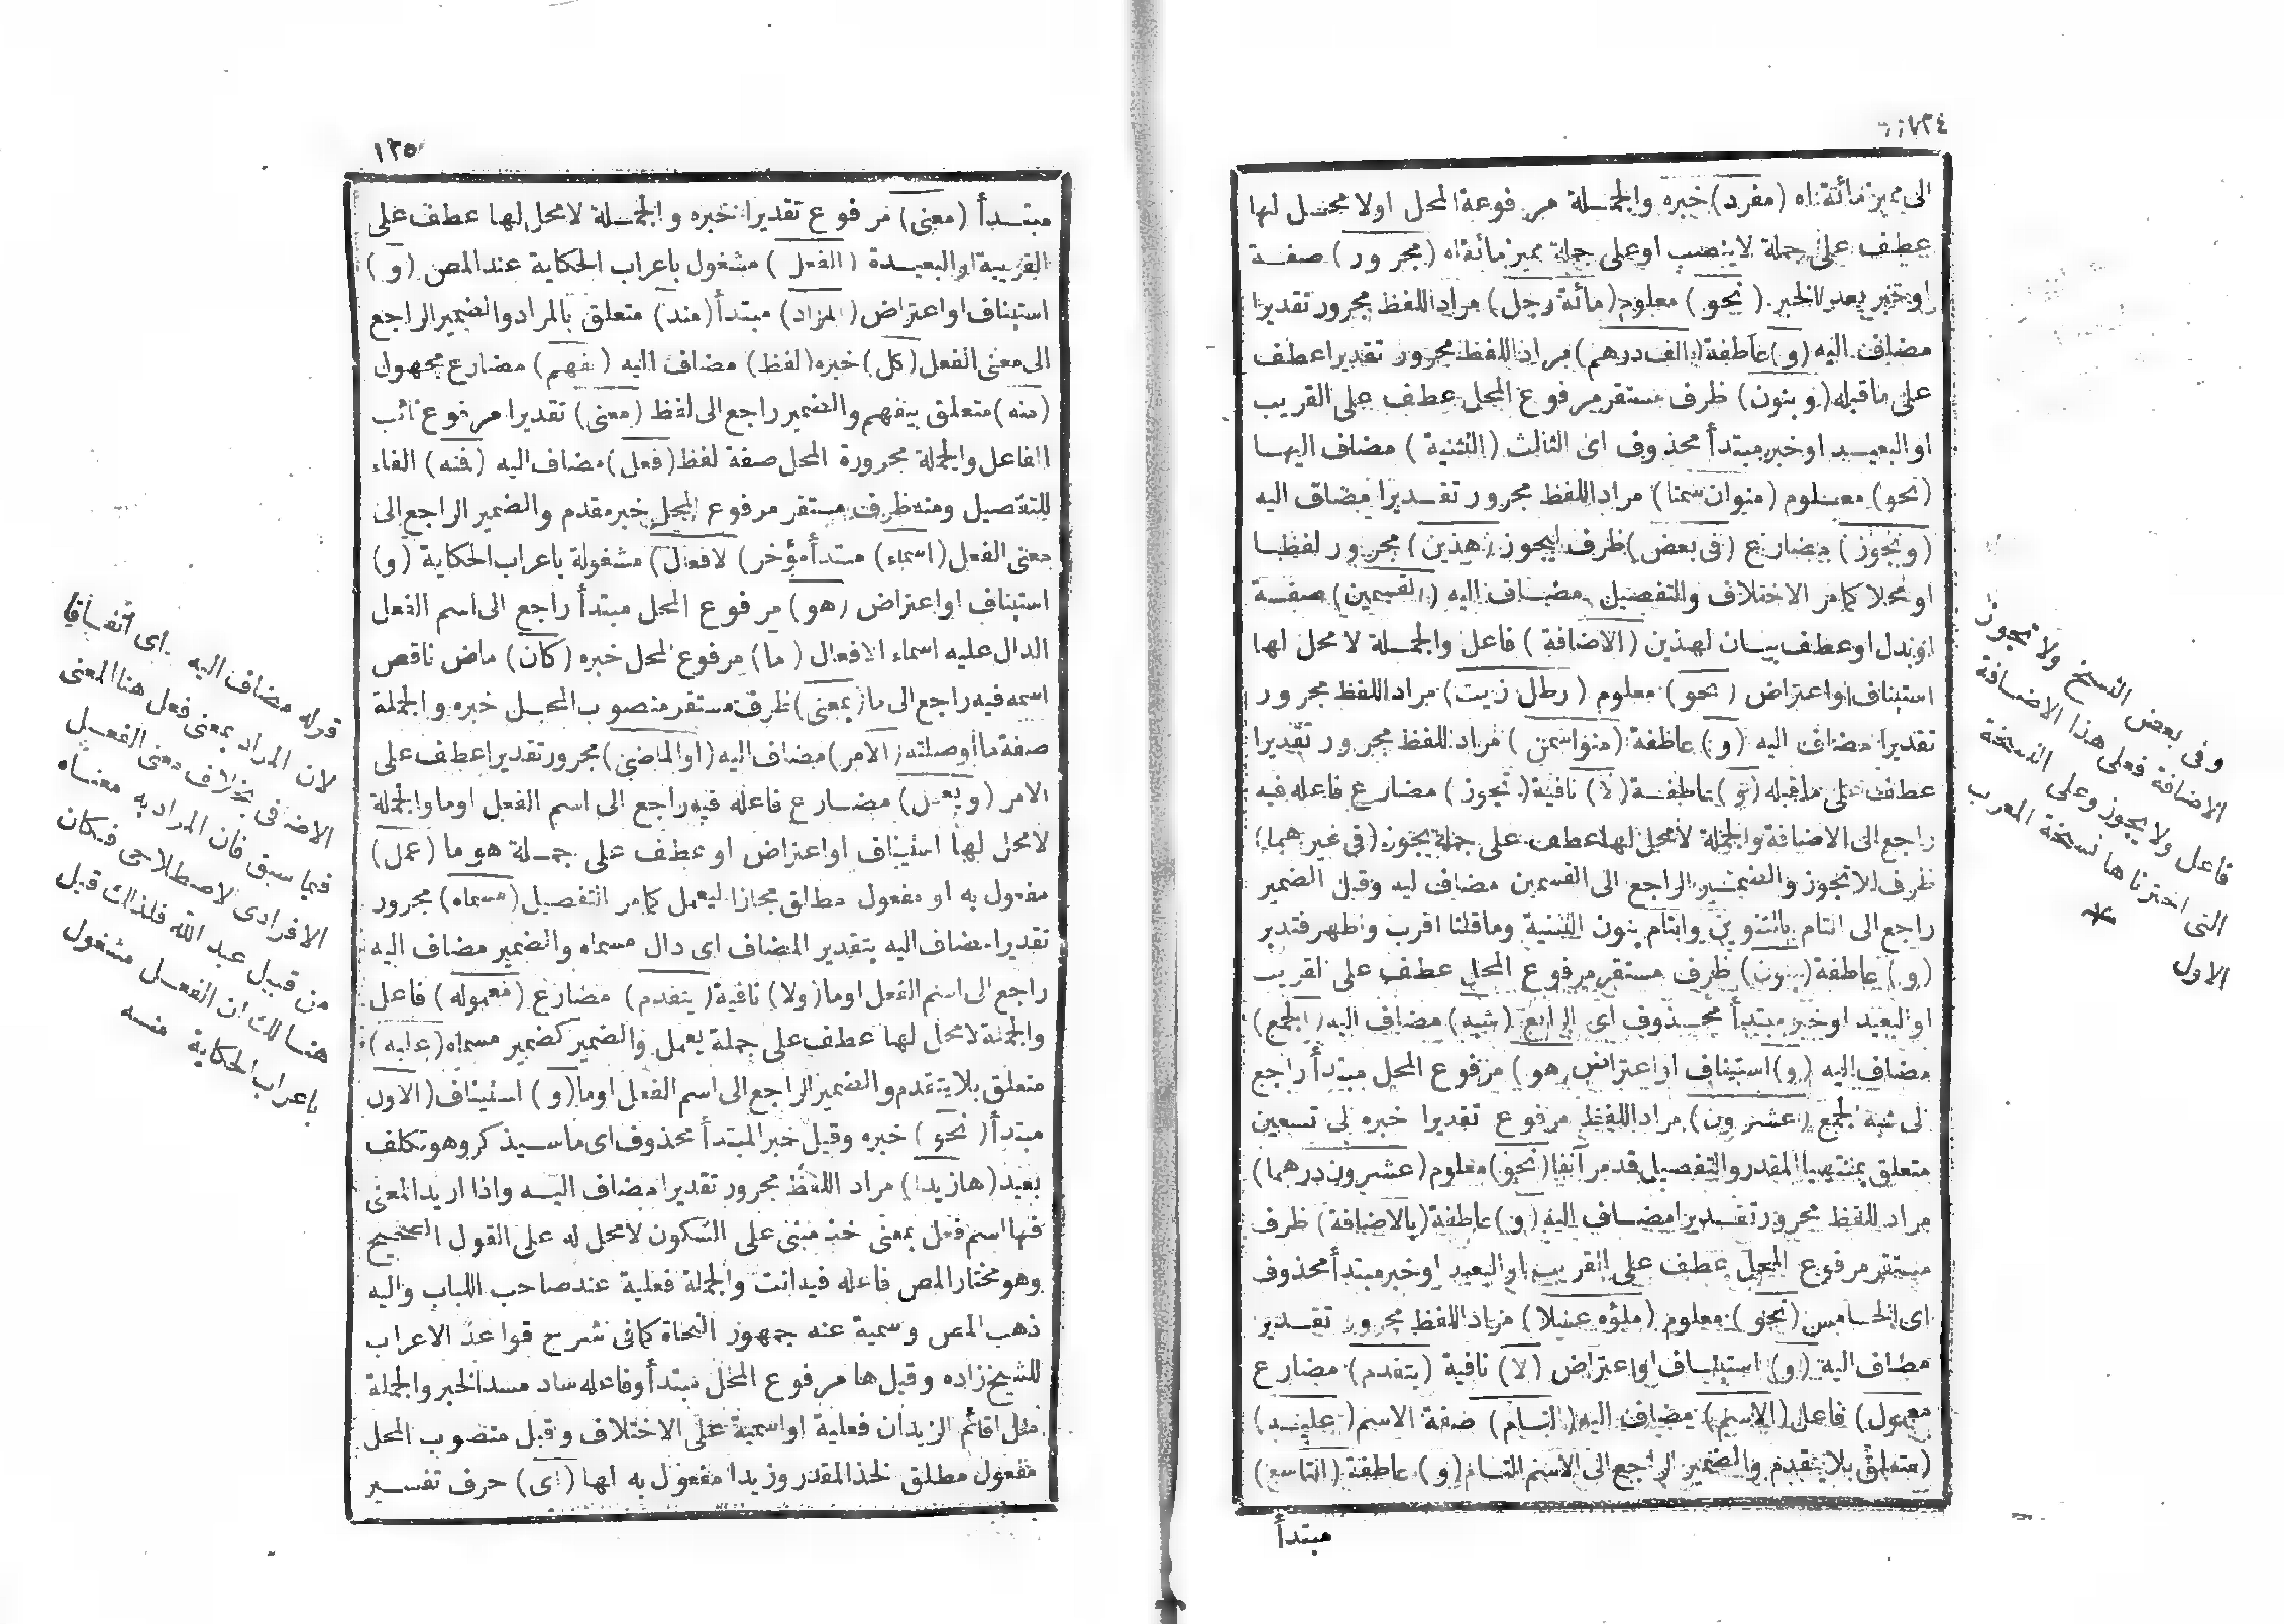 ١٣٤
الى مميز مائة اه (مفرد) خبره والجملة مرفوعة المحل اولا محل لها
عطف على جملة لا ينصب او على جملة مميز مائة اه (مجرور) صفة
او خبر بعد الخبر (نحو) معلوم (مائة رجل) مراد اللفظ مجرور تقديرا
مضاف اليه (و) عاطفة (الف درهم) مراد اللفظ مجرور تقديرا عطف
على ماقبله (وبنون) ظرف مستقر مرفوع المحل عطف على القريب
او البعيد او خبر مبتدأ محذوف اى الثالث (التثنية) مضاف اليها
(نحو) معلوم (منوان سمنا) مراد اللفظ مجرور تقديرا مضاف اليه
(ويجوز) مضارع (فى بعض) ظرف ليجوز (هذين) مجرور لفظا
او محلا كامر الاختلاف والتفصيل مضاف اليه (القسمين) صفة
او بدل او عطف بيان لهذين (الاضافة) فاعل والجملة لا محل لها
استيناف او اعتراض (نحو) معلوم (رطل زيت) مراد اللفظ مجرور
تقديرا مضاف اليه (و) عاطفة (منوا سمن) مراد اللفظ مجرور تقديرا
عطف على ماقبله (و) عاطفة (لا) نافية (تجوز) مضارع فاعله فيه
راجع الى الاضافة والجملة لا محل لها عطف على جملة يجوز (فى غيرهما)
ظرف للاتجوز والضمير الراجع الى القسمين مضاف اليه وقيل الضمير
راجع الى التام بالتنوين والتام بنون التثنية وما قلنا اقرب واظهر فتدبر
(و) عاطفة (بنون) ظرف مستقر مرفوع المحل عطف على القريب
او البعيد او خبر مبتدأ محذوف اى الرابع (شبه) مضاف اليه (الجمع)
مضاف اليه (و) استيناف او اعتراض (هو) مرفوع المحل مبتدأ راجع
الى شبه الجمع (عشرون) مراد اللفظ مرفوع تقديرا خبره الى تسعين
متعلق بمنتهيا المقدر والتفصيل قد مر آنفا (نحو) معلوم (عشرون درهما)
مراد اللفظ مجرور تقديرا مضاف اليه (و) عاطفة (بالاضافة) ظرف
مستقر مرفوع المحل عطف على القريب او البعيد او خبر مبتدأ محذوف
اى الخامس (نحو) معلوم (ملؤه عسلا) مراد اللفظ مجرور تقدير
مضاف اليه (و) استيناف او اعتراض (لا) نافية (يتقدم) مضارع
(معمول) فاعل (الاسم) مضاف اليه (التام) صفة الاسم (عليه)
(متعلق بلا يتقدم والضمير الراجع الى الاسم التام (و) عاطفة (التاسع)
مبتدأ
وفى بعض النسخ ولا تجوز
الاضافة فعلى هذا الاضافة
فاعل ولا يجوز وعلى النسخة
التى اخترناها نسخة المعرب
الاول
*
١٣٥
مبتدأ (معنى) مرفوع تقديرا خبره والجملة لا محل لها عطف على
القريبة او البعيدة (الفعل) مشغول باعراب الحكاية عند المص (و)
استيناف او اعتراض (المراد) مبتدأ (منه) متعلق بالمراد والضمير الراجع
الى معنى الفعل (كل) خبره (لفظ) مضاف اليه (يفهم) مضارع مجهول
(منه) متعلق بيفهم والضمير راجع الى لفظ (معنى) تقديرا مرفوع نائب
الفاعل والجملة مجرورة المحل صفة لفظ (فعل) مضاف اليه (فنه) الفاء
للتفصيل ومنه ظرف مستقر مرفوع المحل خبر مقدم والضمير الراجع الى
معنى الفعل (اسماء) مبتدأ مؤخر (الافعال) مشغولة باعراب الحكاية (و)
استيناف او اعتراض (هو) مرفوع المحل مبتدأ راجع الى اسم الفعل
الدال عليه اسماء الافعال (ما) مرفوع المحل خبره (كان) ماض ناقص
اسمه فيه راجع الى ما (بمعنى) ظرف مستقر منصوب المحل خبره والجملة
صفة ما او صلته (الامر) مضاف اليه (او الماضى) مجرور تقديرا عطف على
الامر (ويعمل) مضارع فاعله فيه راجع الى اسم الفعل او ما والجملة
لا محل لها استيناف او اعتراض او عطف على جملة هو ما (عمل)
مفعول به او مفعول مطلق مجازا ليعمل كامر التفصيل (مسماه) مجرور
تقديرا مضاف اليه بتقدير المضاف اى دال مسماه والضمير مضاف اليه
راجع الى اسم الفعل او ما (ولا) نافية (يتقدم) مضارع (معموله) فاعل
والجملة لا محل لها عطف على جملة يعمل والضمير كضمير مسماه (عليه)
متعلق بلا يتقدم والضمير الراجع الى اسم الفعل او ما (و) استيناف (الاول
مبتدأ (نحو) خبره وقيل خبر المبتدأ محذوف اى ما سيذكر وهو تكلف
بعيد (ها زيدا) مراد اللفظ مجرور تقديرا مضاف اليه واذا اريد المعنى
فها اسم فعل بمعنى خذ مبنى على السكون لا محل له على القول الصحيح
وهو مختار المص فاعله فيه انت والجملة فعلية عند صاحب اللباب واليه
ذهب المص وسمية عنه جمهور النحاة كما فى شرح قواعد الاعراب
للشيخ زاده وقيل ها مرفوع المحل مبتدأ وفاعله ساد مسد الخبر والجملة
مثل اقائم الزيدان فعلية او اسمية على الاختلاف وقيل منصوب المحل
مفعول مطلق لخذ المقدر وزيدا مفعول به لها (اى) حرف تفسير
قوله مضاف اليه اى اتفاقا
لان المراد بمعنى فعل هنا المعنى
الاضافى بخلاف معنى الفعل
فيما سبق فان المراد به معناه
الافرادى لاصطلاحى فكان
من قبيل عبد الله فلذلك قيل
هنالك ان الفعل مشغول
باعراب الحكاية منه